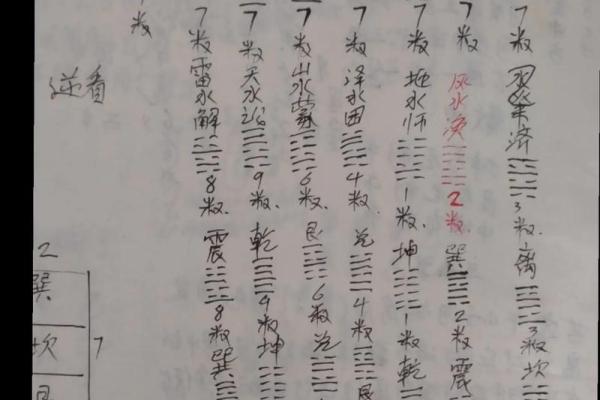 7数 济 3数. 离 3数 坎
7数 风水涣 2数. 巽 2数 震
7数 地水师 1数. 坤 1数 乾
7数 泽水困 4数. 兑 4数 艮
7数 山水蒙 6数. 艮 6数 兑
7数 天水讼 9数. 乾 9数 坤
7数 雷水解 8数. 震 8数 巽
数
逆看
2
巽
坎 7